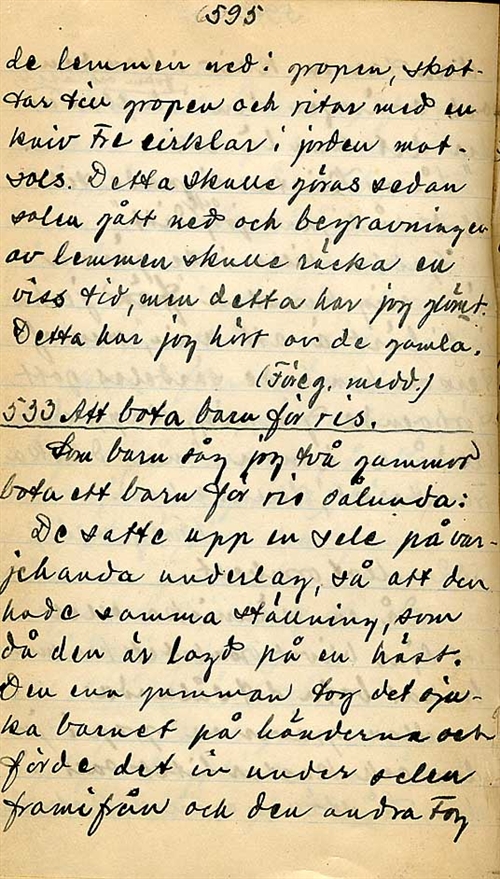 595
de lemmen ned i gropen, skot-
tar till gropen och ritar med en
kniv tre cirklar i jorden mot-
sols. Detta skulle göras sedan
solen gått ned och begravningen
av lemmen skulle räcka en
viss tid, men detta har jag glömt.
Detta har jag hört av de gamla.
(Föreg. medd.)
533 Att bota barn för ris.
Som barn såg jag två gummor
bota ett barn för ris sålunda:
De satte upp en sele på var-
jehanda underlag, så att den
hade samma ställning, som
då den är lagd på en häst.
Den ena gumman tog det sju-
ka barnet på händerna och
förde det in under selen
framifrån och den andra tog